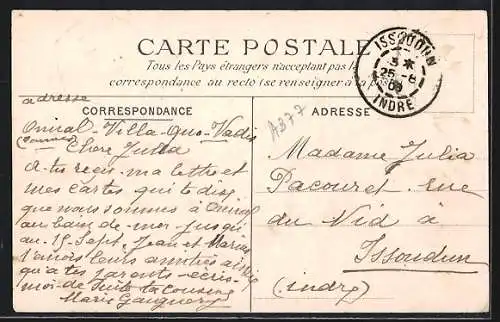 CARTE POSTALE
Tous les Pays étrangers n'acceptant pas la
correspondance au recto (se renseigner à la poste)
ISSOUDUN
5 *
25 - 8
09
INDRE
CORRESPONDANCE
ADRESSE
A377
adresse
Onival - Villa - Quo - Vadis
Chère Julia
a tu reçu ma lettre et
mes cartes qui te dise
que nous sommes à Onival
au bain de mer jusqu'
au 15 Sept. Jean et Marcus
t'envoi leurs amitiés ainsi
qu'a tes parents - écris
moi de suite ta cousine
Marie Gauguery
Madame Julia
Pacouret - rue
du Nid à
Issoudun
(indre)